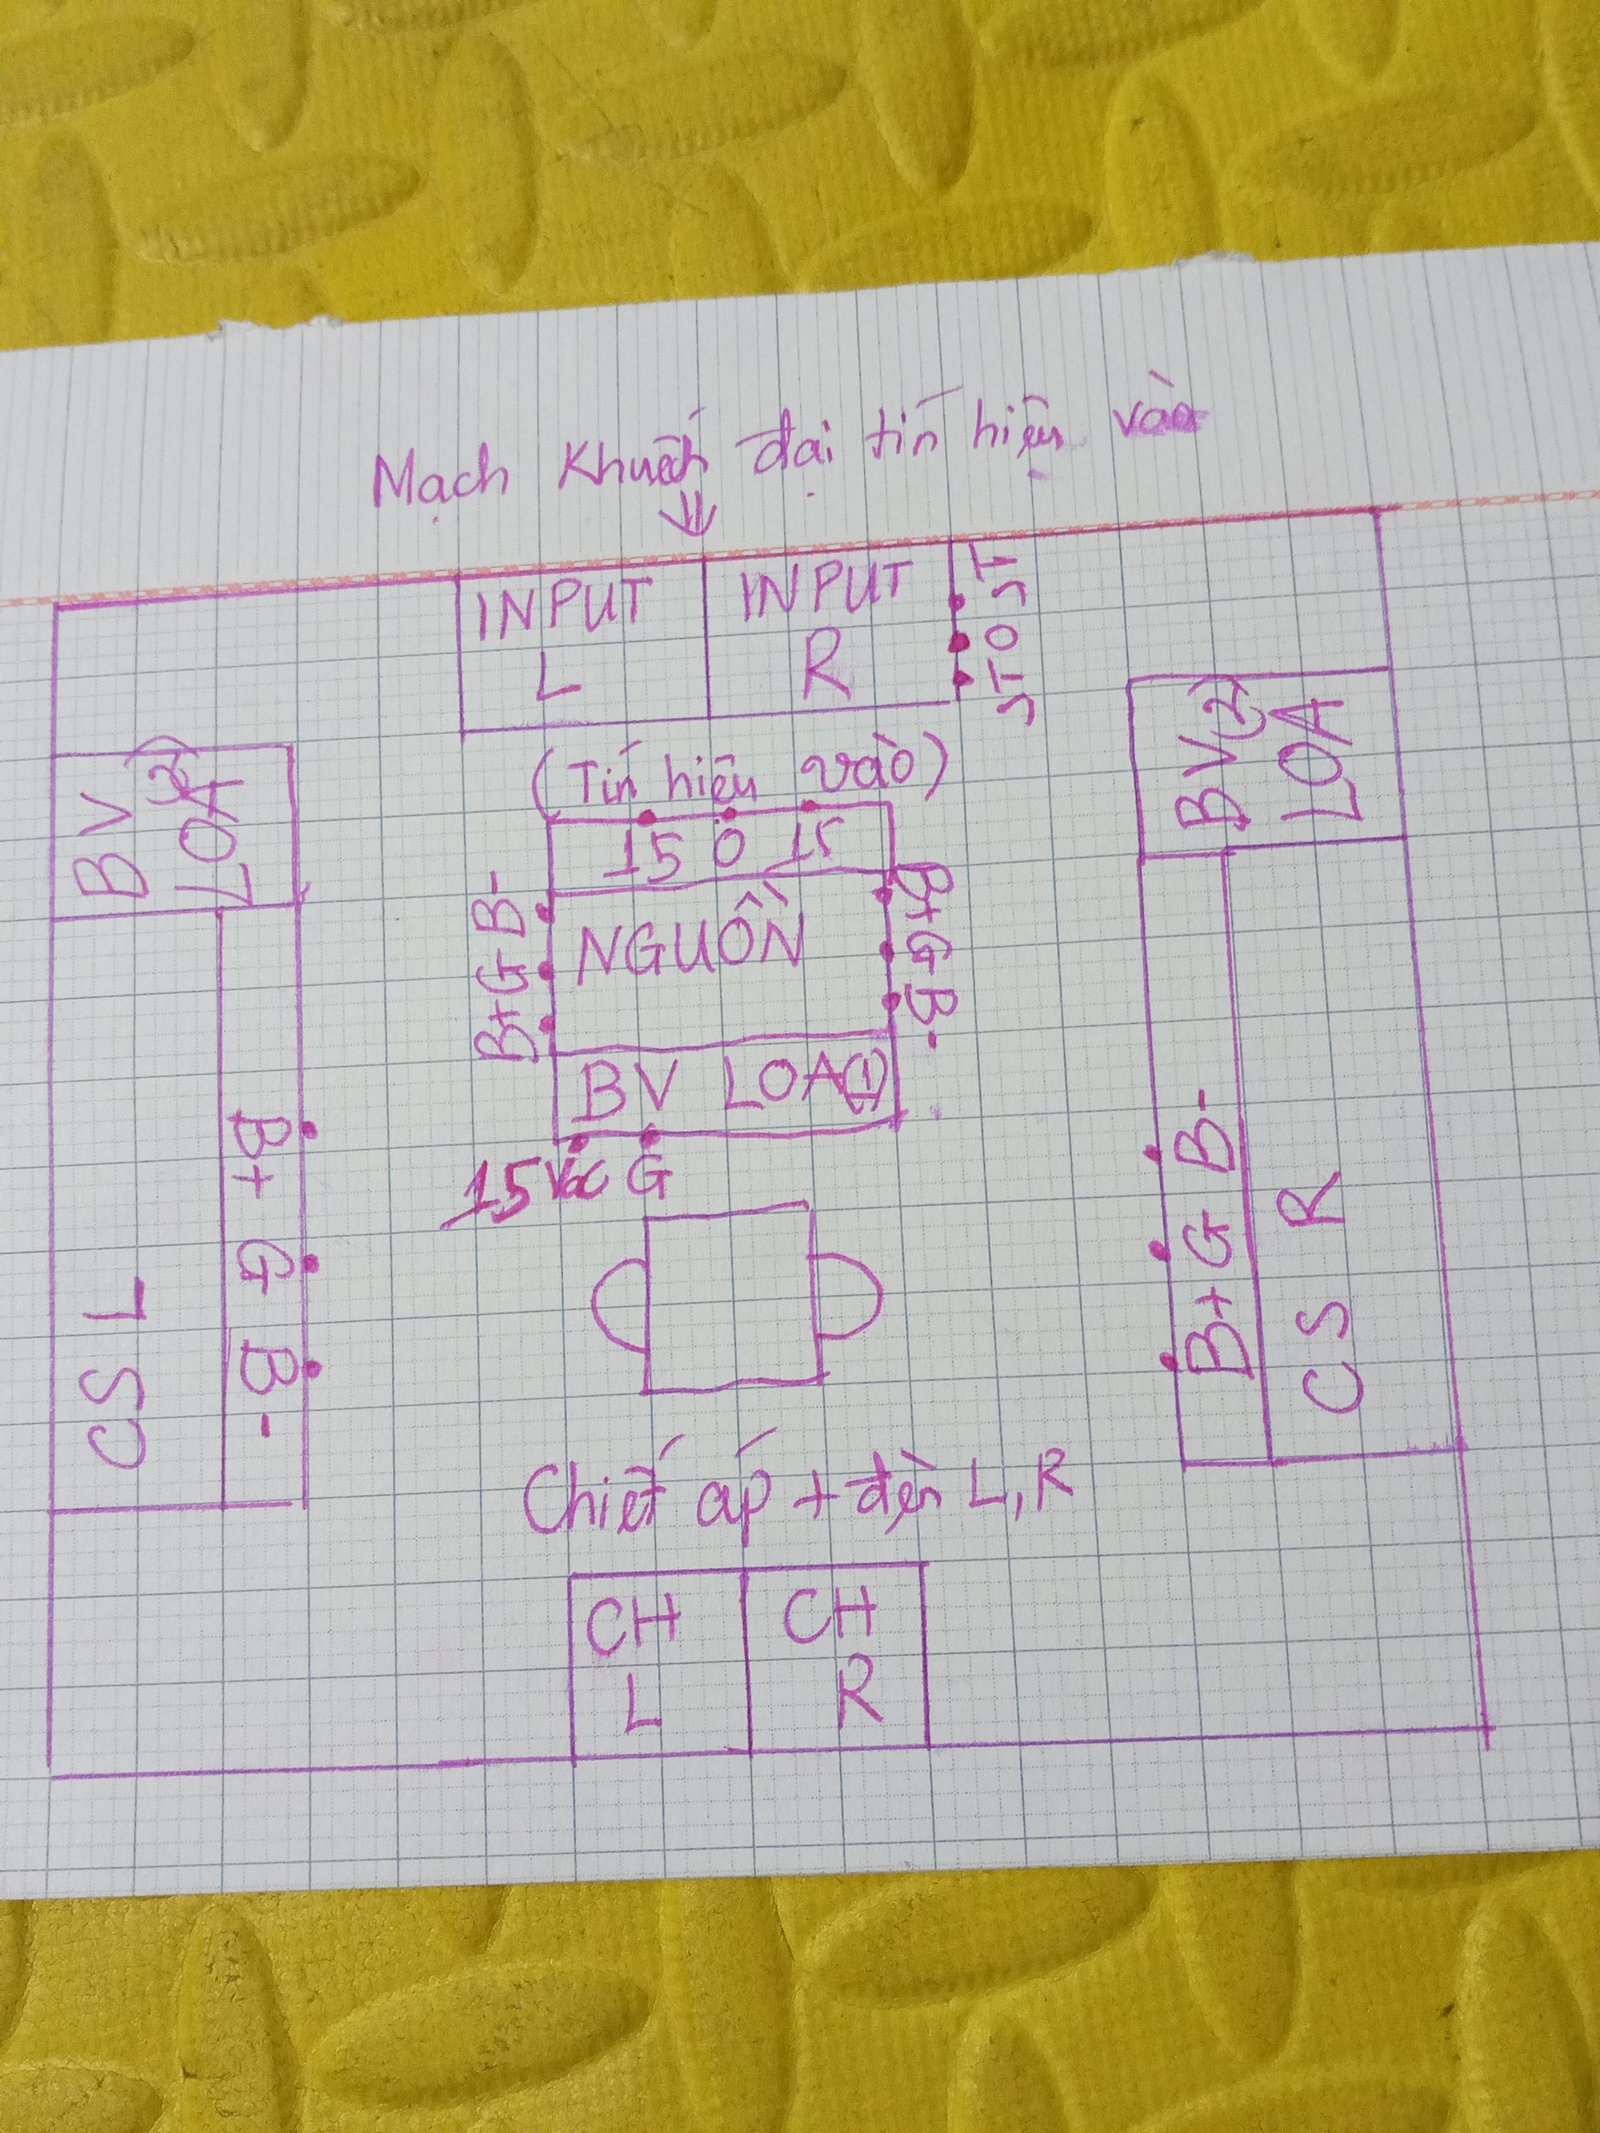 Mạch Khuếch đại tín hiệu vào
INPUT
L
INPUT
R
15 0 15
(Tín hiệu vào)
15 0 15
NGUỒN
B+ G B-
B+ G B-
BV LOA (1)
15 VAC G
BV (2)
LOA
BV (2)
LOA
CS L
B+ G B-
B+ G B-
CS R
Chiết áp + đèn L, R
CH
L
CH
R